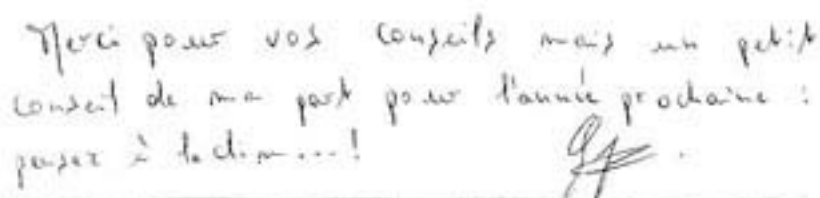 Merci pour vos conseils mais un petit
conseil de ma part pour l'année prochaine :
penser à la clim...!